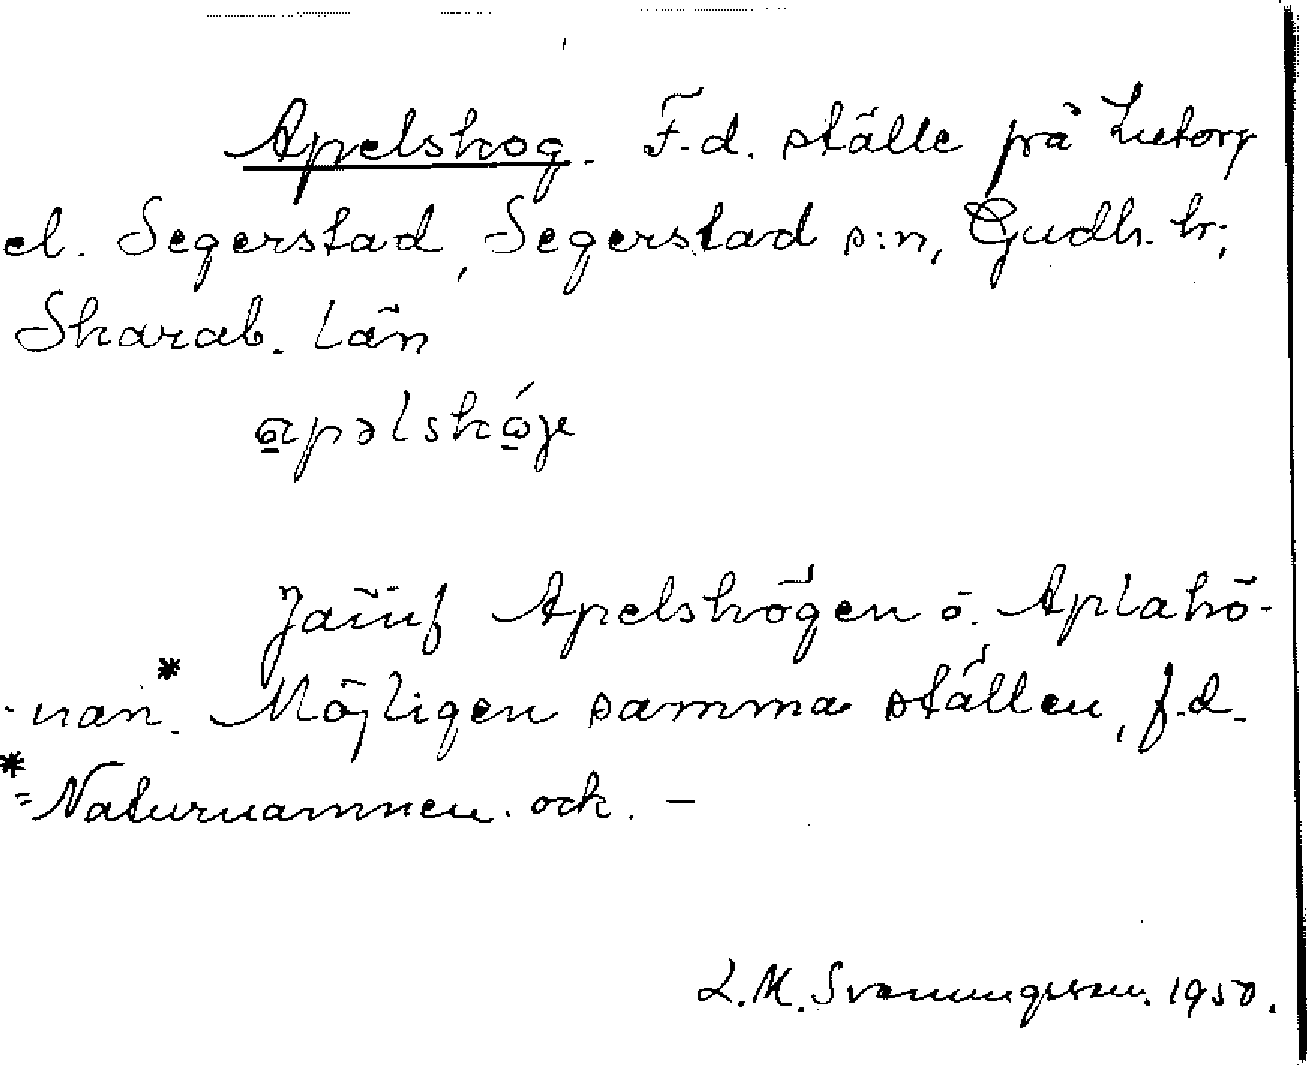 Apelskog. F.d. ställe på Lutorp
el. Segerstad, Segerstad s:n, Gudh. hr;
Skarab. län
apəlskóg
Jämf Apelshögen o. Aplahö-
-nan*. Möjligen samma ställen, f.d.
*=Naturnamnen. ock. –
L.M. Svenungsson. 1950.